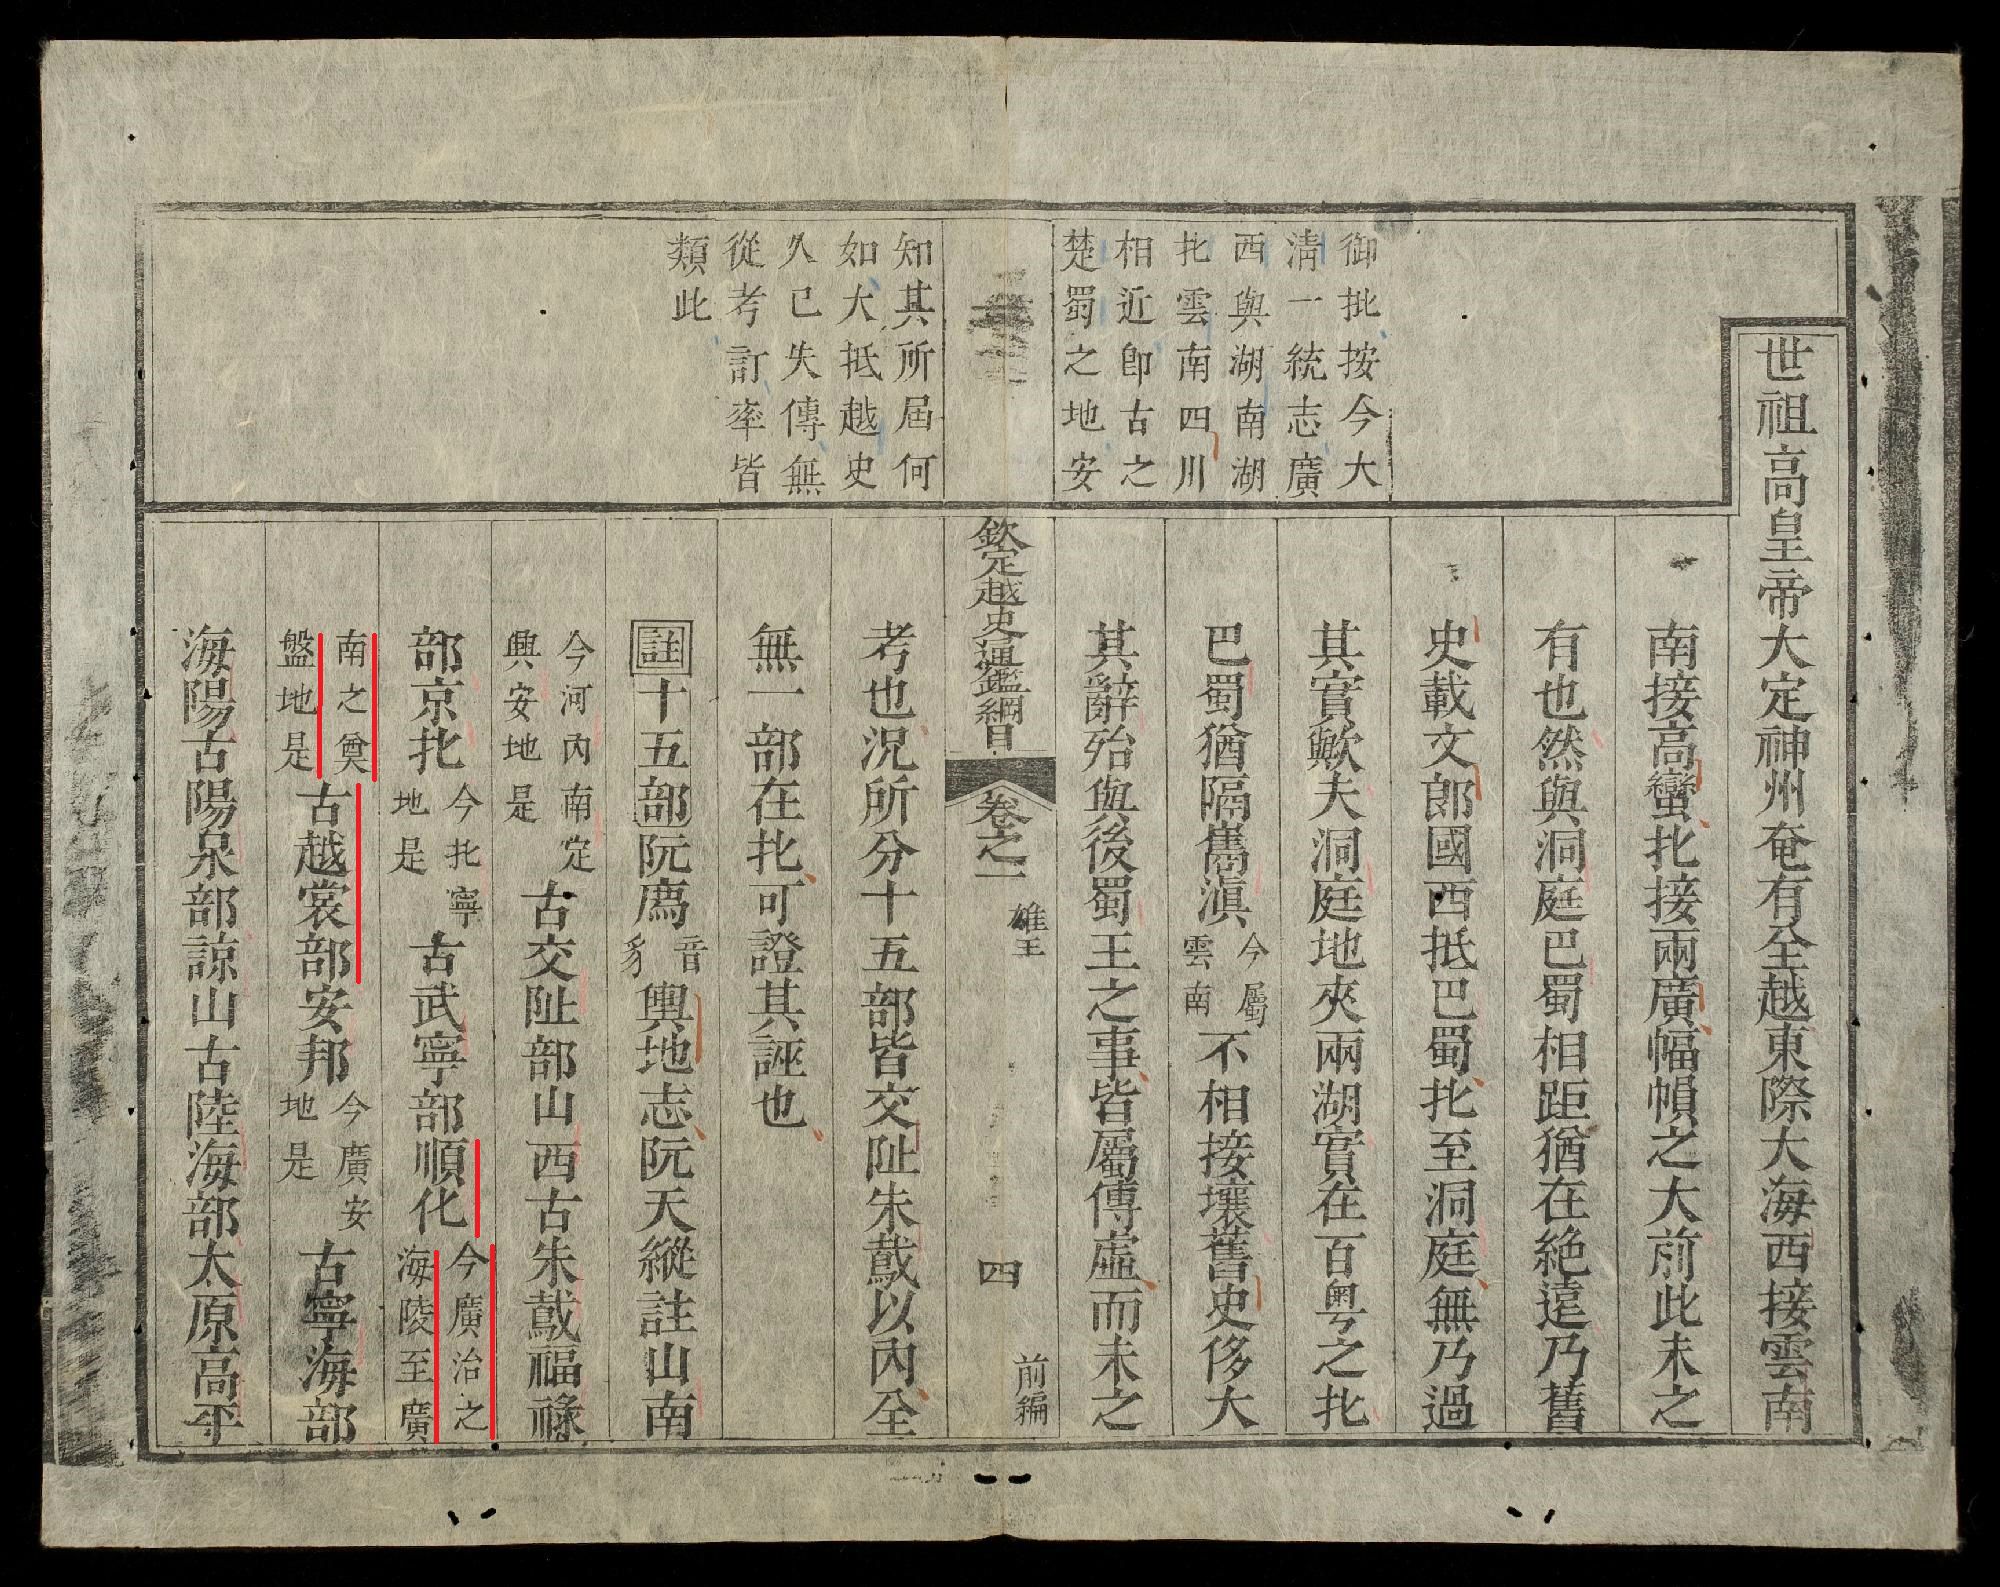 御批按今大
清一統志廣
西與湖南湖
北雲南四川
相近卽古之
楚蜀之地安
知其所屆何
如大抵越史
久已失傳無
從考訂率皆
類此
世祖高皇帝大定神州奄有全越東際大海西接雲南
南接高蠻北接兩廣幅幀之大前此未之
有也然與洞庭巴蜀相距猶在絶遠乃舊
史載文郎國西抵巴蜀北至洞庭無乃過
其實歟夫洞庭地夾兩湖實在百粤之北
巴蜀猶隔雟滇今屬雲南不相接壤舊史侈大
其辭殆與後蜀王之事皆屬傳虛而未之
欽定越史通鑑綱目 卷之一 雄王 四 前編
考也況所分十五部皆交阯朱鳶以內全
無一部在北可證其誣也
註十五部阮廌音豸輿地志阮天縱註山南
今河內南定興安地是古交阯部山西古朱鳶福祿
部京北今北寧地是古武寧部順化今廣治之海陵至廣
南之奠盤地是古越裳部安邦今廣安地是古寧海部
海陽古陽泉部諒山古陸海部太原高平